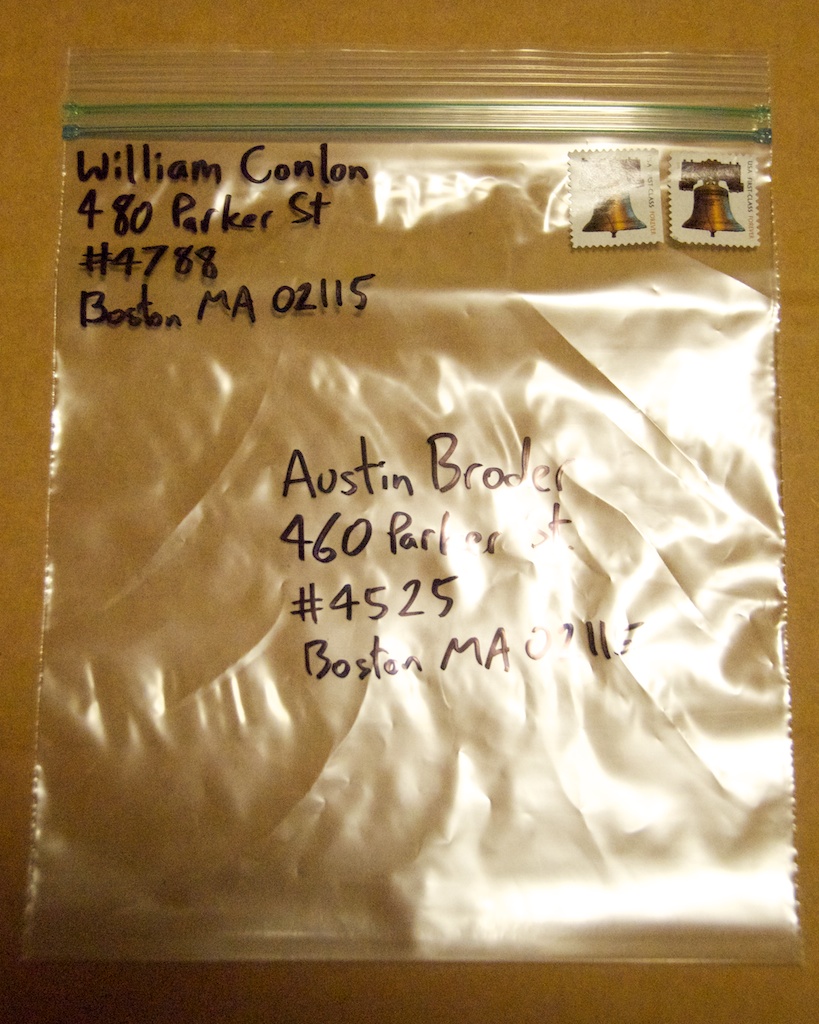 William Conlon
480 Parker St
#4788
Boston MA 02115
USA FIRST-CLASS FOREVER
Austin Broder
460 Parker St
#4525
Boston MA 02115